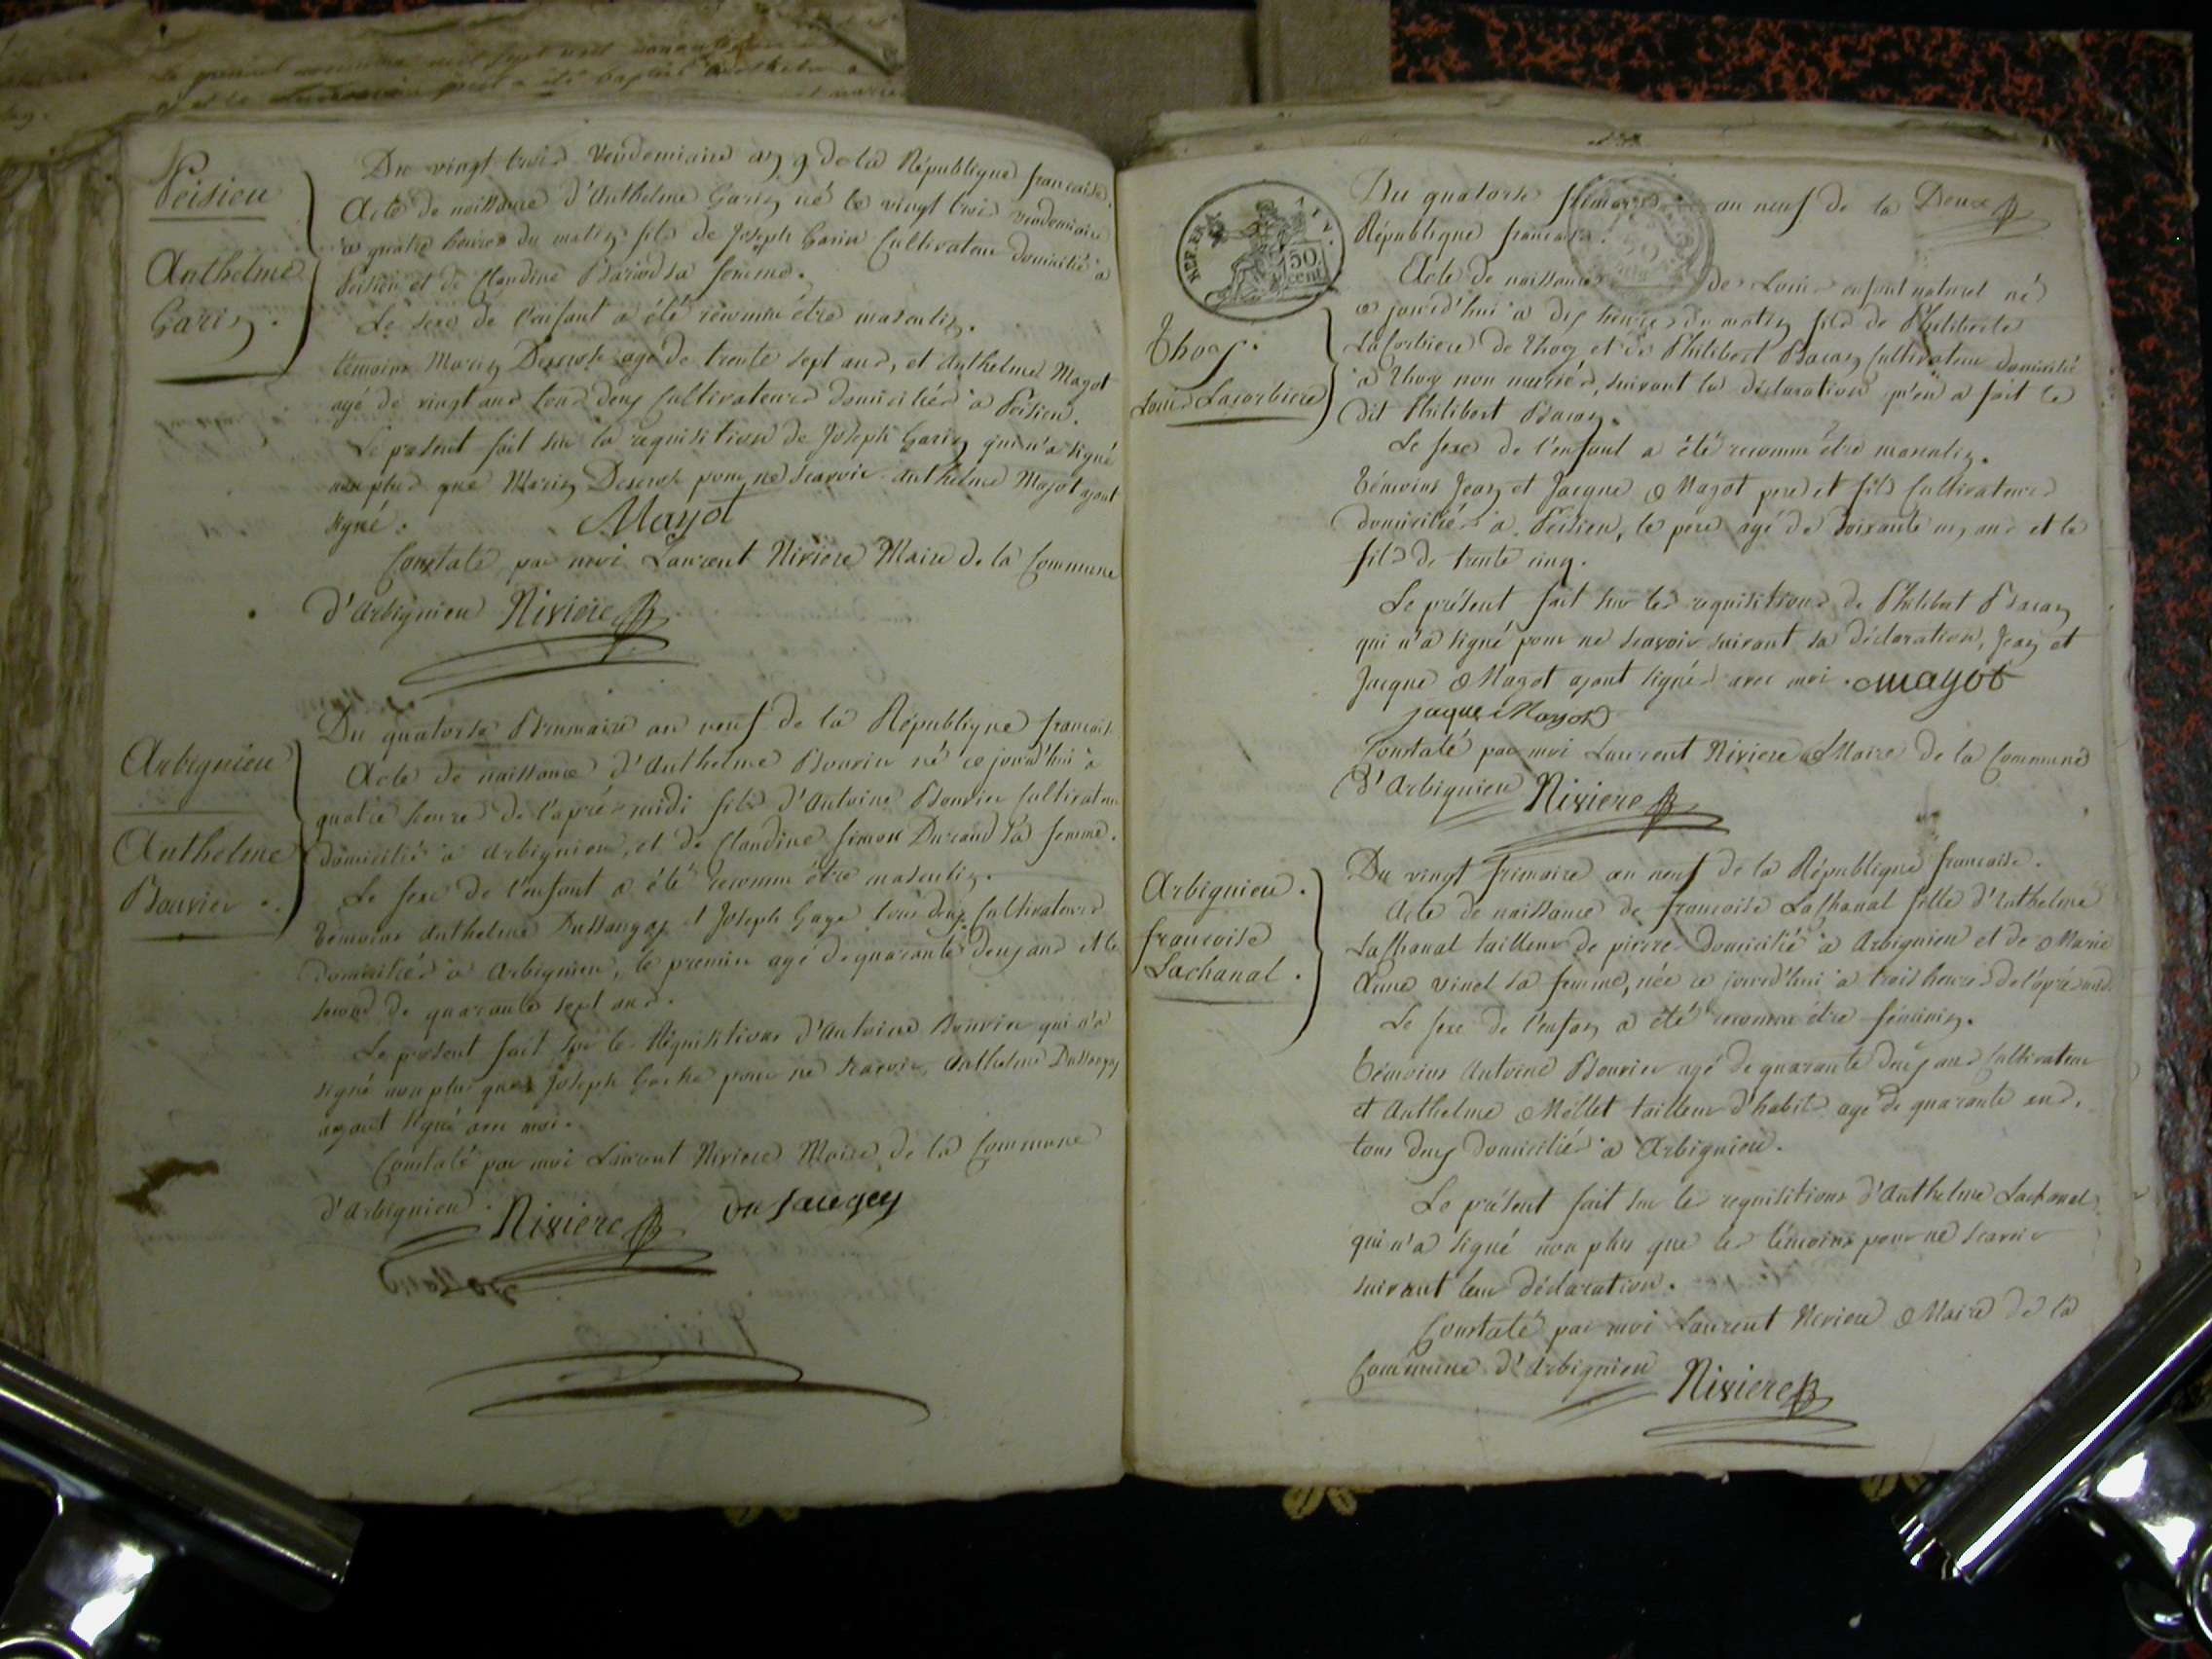 Peisieu
Anthelme
Garin.
Du vingt trois Vendemiaire an 9 de la République francaise.
Acte de naissance d'Anthelme Garin né le vingt trois vendemiaire
a quatre heures du matin fils de Joseph Garin Cultivateur domicilié à
Peisieu et de Claudine Bariod sa femme.
Le sexe de l'enfant a été reconnu être masculin.
témoins Marin Descrose agé de trente sept ans, et Anthelme Mayot
agé de vingt ans tous deux Cultivateurs domiciliés à Peisieu.
Le présent fait sur la réquisition de Joseph Garin qui n'a signé
non plus que Marin Descrose pour ne scavoir Anthelme Mayot ayant
signé.
Mayot
Constaté par moi Laurent Niviere Maire de la Commune
d'Arbignieu Niviere
Arbignieu
Anthelme
Bouvier.
Du quatorse Brumaire an neuf de la République francaise
Acte de naissance d'Anthelme Bouvier né ce jourd'hui à
quatre heures de l'après midi fils d'Antoine Bouvier Cultivateur
domicilié à Arbignieu, et de Claudine Simon Durand sa femme.
Le sexe de l'enfant a été reconnu être masculin.
témoins Anthelme Dussaugey et Joseph Gache tous deux Cultivateurs
domiciliés à Arbignieu, le premier agé de quarante deux ans et le
second de quarante sept ans.
Le présent fait sur les Réquisitions d'Antoine Bouvier qui n'a
signé non plus que Joseph Gache pour ne scavoir, Anthelme Dussaugey
ayant signé avec moi.
Constaté par moi Laurent Niviere Maire de la Commune
d'Arbignieu.
Niviere Dusaugey
REP. FRA
50
cent
Thoy.
Louis Lacorbiere
Du quatorse frimaire an neuf de la Deux
République francaise.
Acte de naissance de Louis enfant naturel né
ce jourd'hui à dix heures du matin fils de Philiberte
Lacorbiere de Thoy et de Philibert Bacon Cultivateur domicilié
à Thoy non mariés, suivant la déclaration qu'en a fait le
dit Philibert Bacon.
Le sexe de l'enfant a été reconnu être masculin.
témoins Jean et Jacque Mayot pere et fils Cultivateurs
domiciliés à Peisieu, le pere agé de soixante un ans et le
fils de trente cinq.
Le présent fait sur les requisitions de Philibert Bacon
qui n'a signé pour ne scavoir suivant sa déclaration, Jean et
Jacque Mayot ayant signés avec moi. mayot
jaque Mayot
Constaté par moi Laurent Niviere Maire de la Commune
d'Arbignieu Niviere
Arbignieu.
francoise
Lachanal.
Du vingt frimaire an neuf de la République francaise.
Acte de naissance de francoise Lachanal fille d'Anthelme
Lachanal tailleur de pierre domicilié à Arbignieu et de Marie
Anne vinet sa femme, née ce jourd'hui à trois heures de l'après midi.
Le sexe de l'enfan a été reconnu être féminin.
témoins Antoine Bouvier agé de quarante deux ans Cultivateur
et Anthelme Mollet tailleur d'habits agé de quarante ans,
tous deux domiciliés à Arbignieu.
Le présent fait sur les requisitions d'Anthelme Lachanal
qui n'a signé non plus que les témoins pour ne scavoir
suivant leur déclaration.
Constaté par moi Laurent Niviere Maire de la
Commune d'Arbignieu Niviere